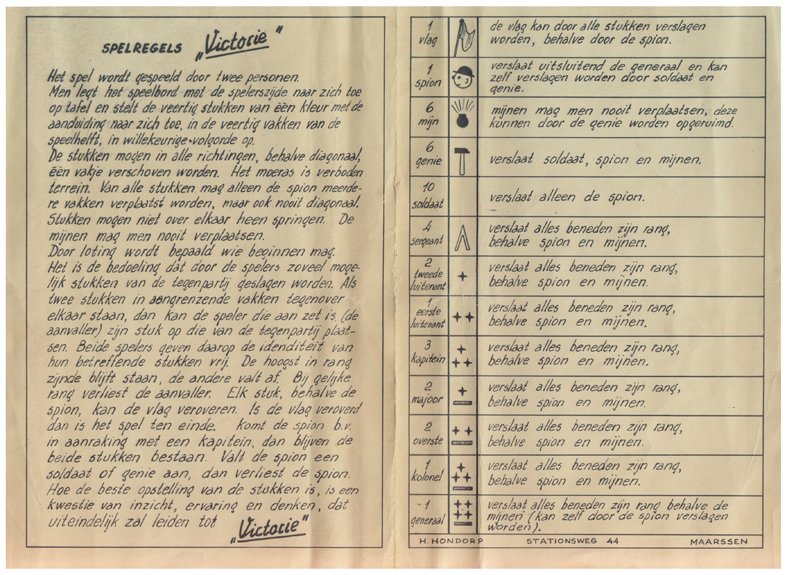 SPELREGELS „Victorie"
Het spel wordt gespeeld door twee personen.
Men legt het speelbord met de spelerszijde naar zich toe
op tafel en stelt de veertig stukken van één kleur met de
aanduiding naar zich toe, in de veertig vakken van de
speelhelft, in willekeurige volgorde op.
De stukken mogen in alle richtingen, behalve diagonaal,
één vakje verschoven worden. Het moeras is verboden
terrein. Van alle stukken mag alleen de spion meerde-
re vakken verplaatst worden, maar ook nooit diagonaal.
Stukken mogen niet over elkaar heen springen. De
mijnen mag men nooit verplaatsen.
Door loting wordt bepaald wie beginnen mag.
Het is de bedoeling dat door de spelers zoveel moge-
lijk stukken van de tegenpartij geslagen worden. Als
twee stukken in aangrenzende vakken tegenover
elkaar staan, dan kan de speler die aan zet is (de
aanvaller) zijn stuk op die van de tegenpartij plaat-
sen. Beide spelers geven daarop de identiteit van
hun betreffende stukken vrij. De hoogst in rang
zijnde blijft staan, de andere valt af. Bij gelijke
rang verliest de aanvaller. Elk stuk, behalve de
spion, kan de vlag veroveren. Is de vlag veroverd
dan is het spel ten einde. Komt de spion b.v.
in aanraking met een kapitein, dan blijven de
beide stukken bestaan. Valt de spion een
soldaat of genie aan, dan verliest de spion.
Hoe de beste opstelling van de stukken is, is een
kwestie van inzicht, ervaring en denken, dat
uiteindelijk zal leiden tot „Victorie"
1 vlag de vlag kan door alle stukken verslagen
worden, behalve door de spion.
1 spion verslaat uitsluitend de generaal en kan
zelf verslagen worden door soldaat en
genie.
6 mijn mijnen mag men nooit verplaatsen, deze
kunnen door de genie worden opgeruimd.
6 genie verslaat soldaat, spion en mijnen.
10 soldaat verslaat alleen de spion.
4 sergeant verslaat alles beneden zijn rang,
behalve spion en mijnen.
2 tweede luitenant verslaat alles beneden zijn rang,
behalve spion en mijnen.
1 eerste luitenant verslaat alles beneden zijn rang,
behalve spion en mijnen.
3 kapitein verslaat alles beneden zijn rang,
behalve spion en mijnen.
2 majoor verslaat alles beneden zijn rang,
behalve spion en mijnen.
2 overste verslaat alles beneden zijn rang,
behalve spion en mijnen.
1 kolonel verslaat alles beneden zijn rang,
behalve spion en mijnen.
1 generaal verslaat alles beneden zijn rang behalve de
mijnen (kan zelf door de spion verslagen
worden).
H. HONDORP STATIONSWEG 44 MAARSSEN